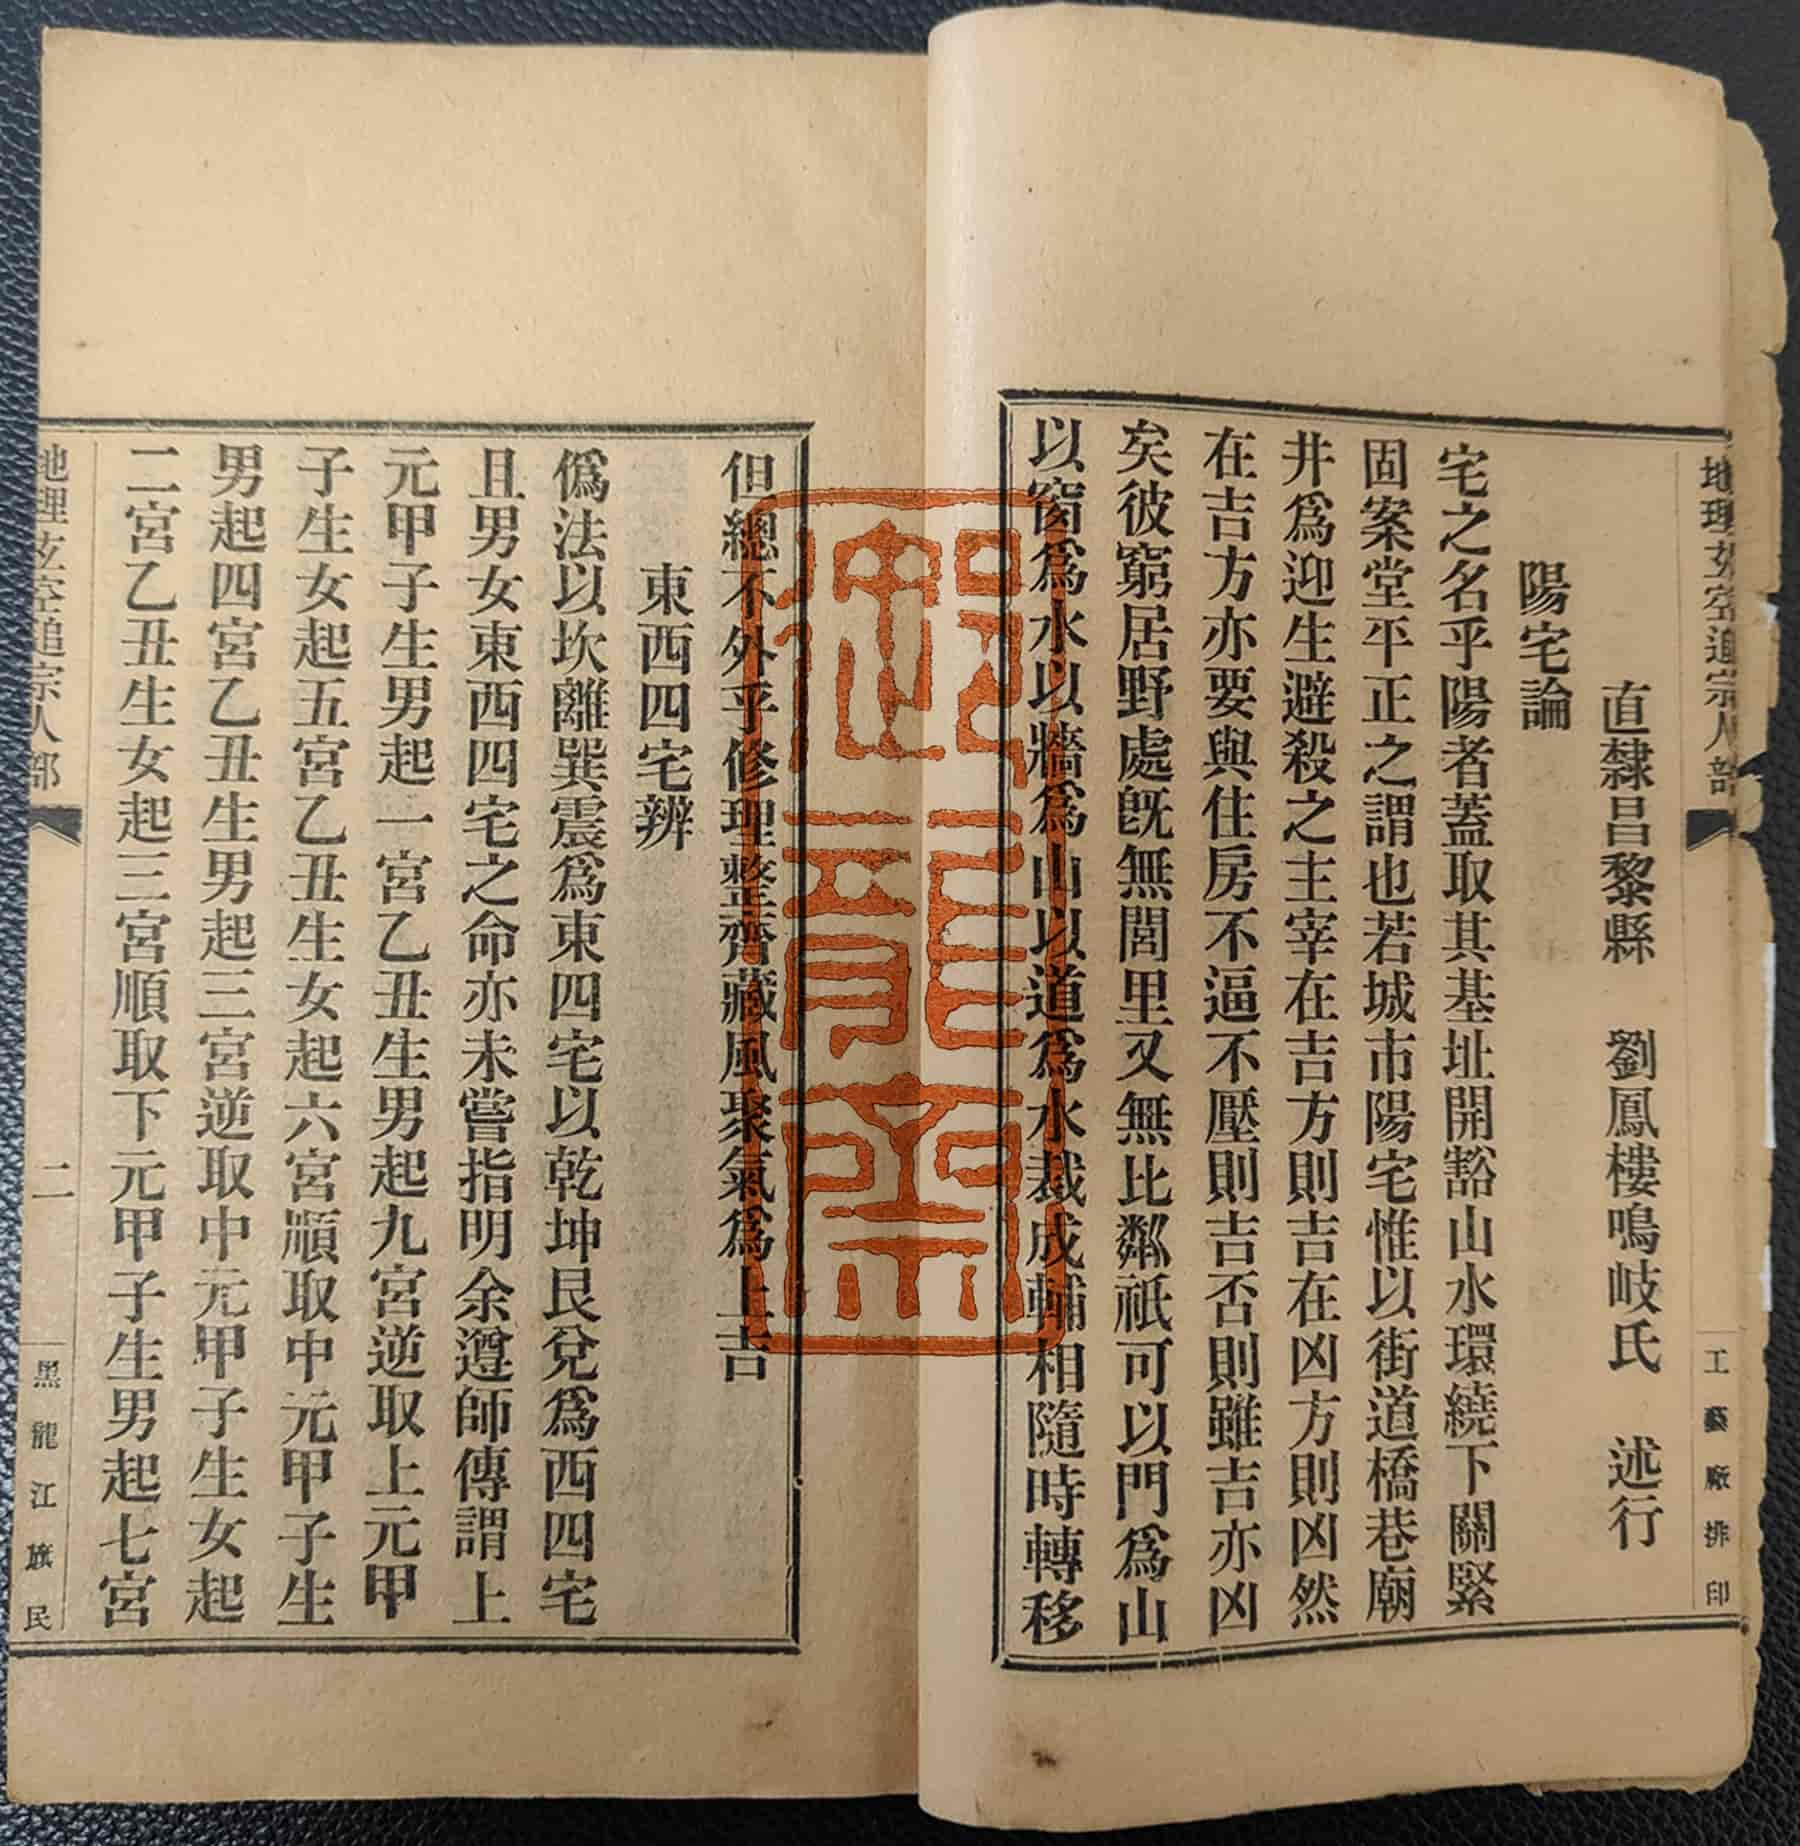 地理玄空追宗人部
工藝廠排印
直隸昌黎縣　劉鳳樓鳴岐氏　述行
陽宅論
宅之名乎陽者蓋取其基址開豁山水環繞下關緊
固案堂平正之謂也若城市陽宅惟以街道橋巷廟
井爲迎生避殺之主宰在吉方則吉在凶方則凶然
在吉方亦要與住房不逼不壓則吉否則雖吉亦凶
矣彼窮居野處旣無閭里又無比鄰祇可以門爲山
以窗爲水以牆爲山以道爲水裁成輔相隨時轉移
但總不外乎修理整齊藏風聚氣爲上吉
東西四宅辨
僞法以坎離巽震爲東四宅以乾坤艮兌爲西四宅
且男女東西四宅之命亦未嘗指明余遵師傳謂上
元甲子生男起一宮乙丑生男起九宮逆取上元甲
子生女起五宮乙丑生女起六宮順取中元甲子生
男起四宮乙丑生男起三宮逆取中元甲子生女起
二宮乙丑生女起三宮順取下元甲子生男起七宮
地理玄空追宗人部
二
黑龍江旗民